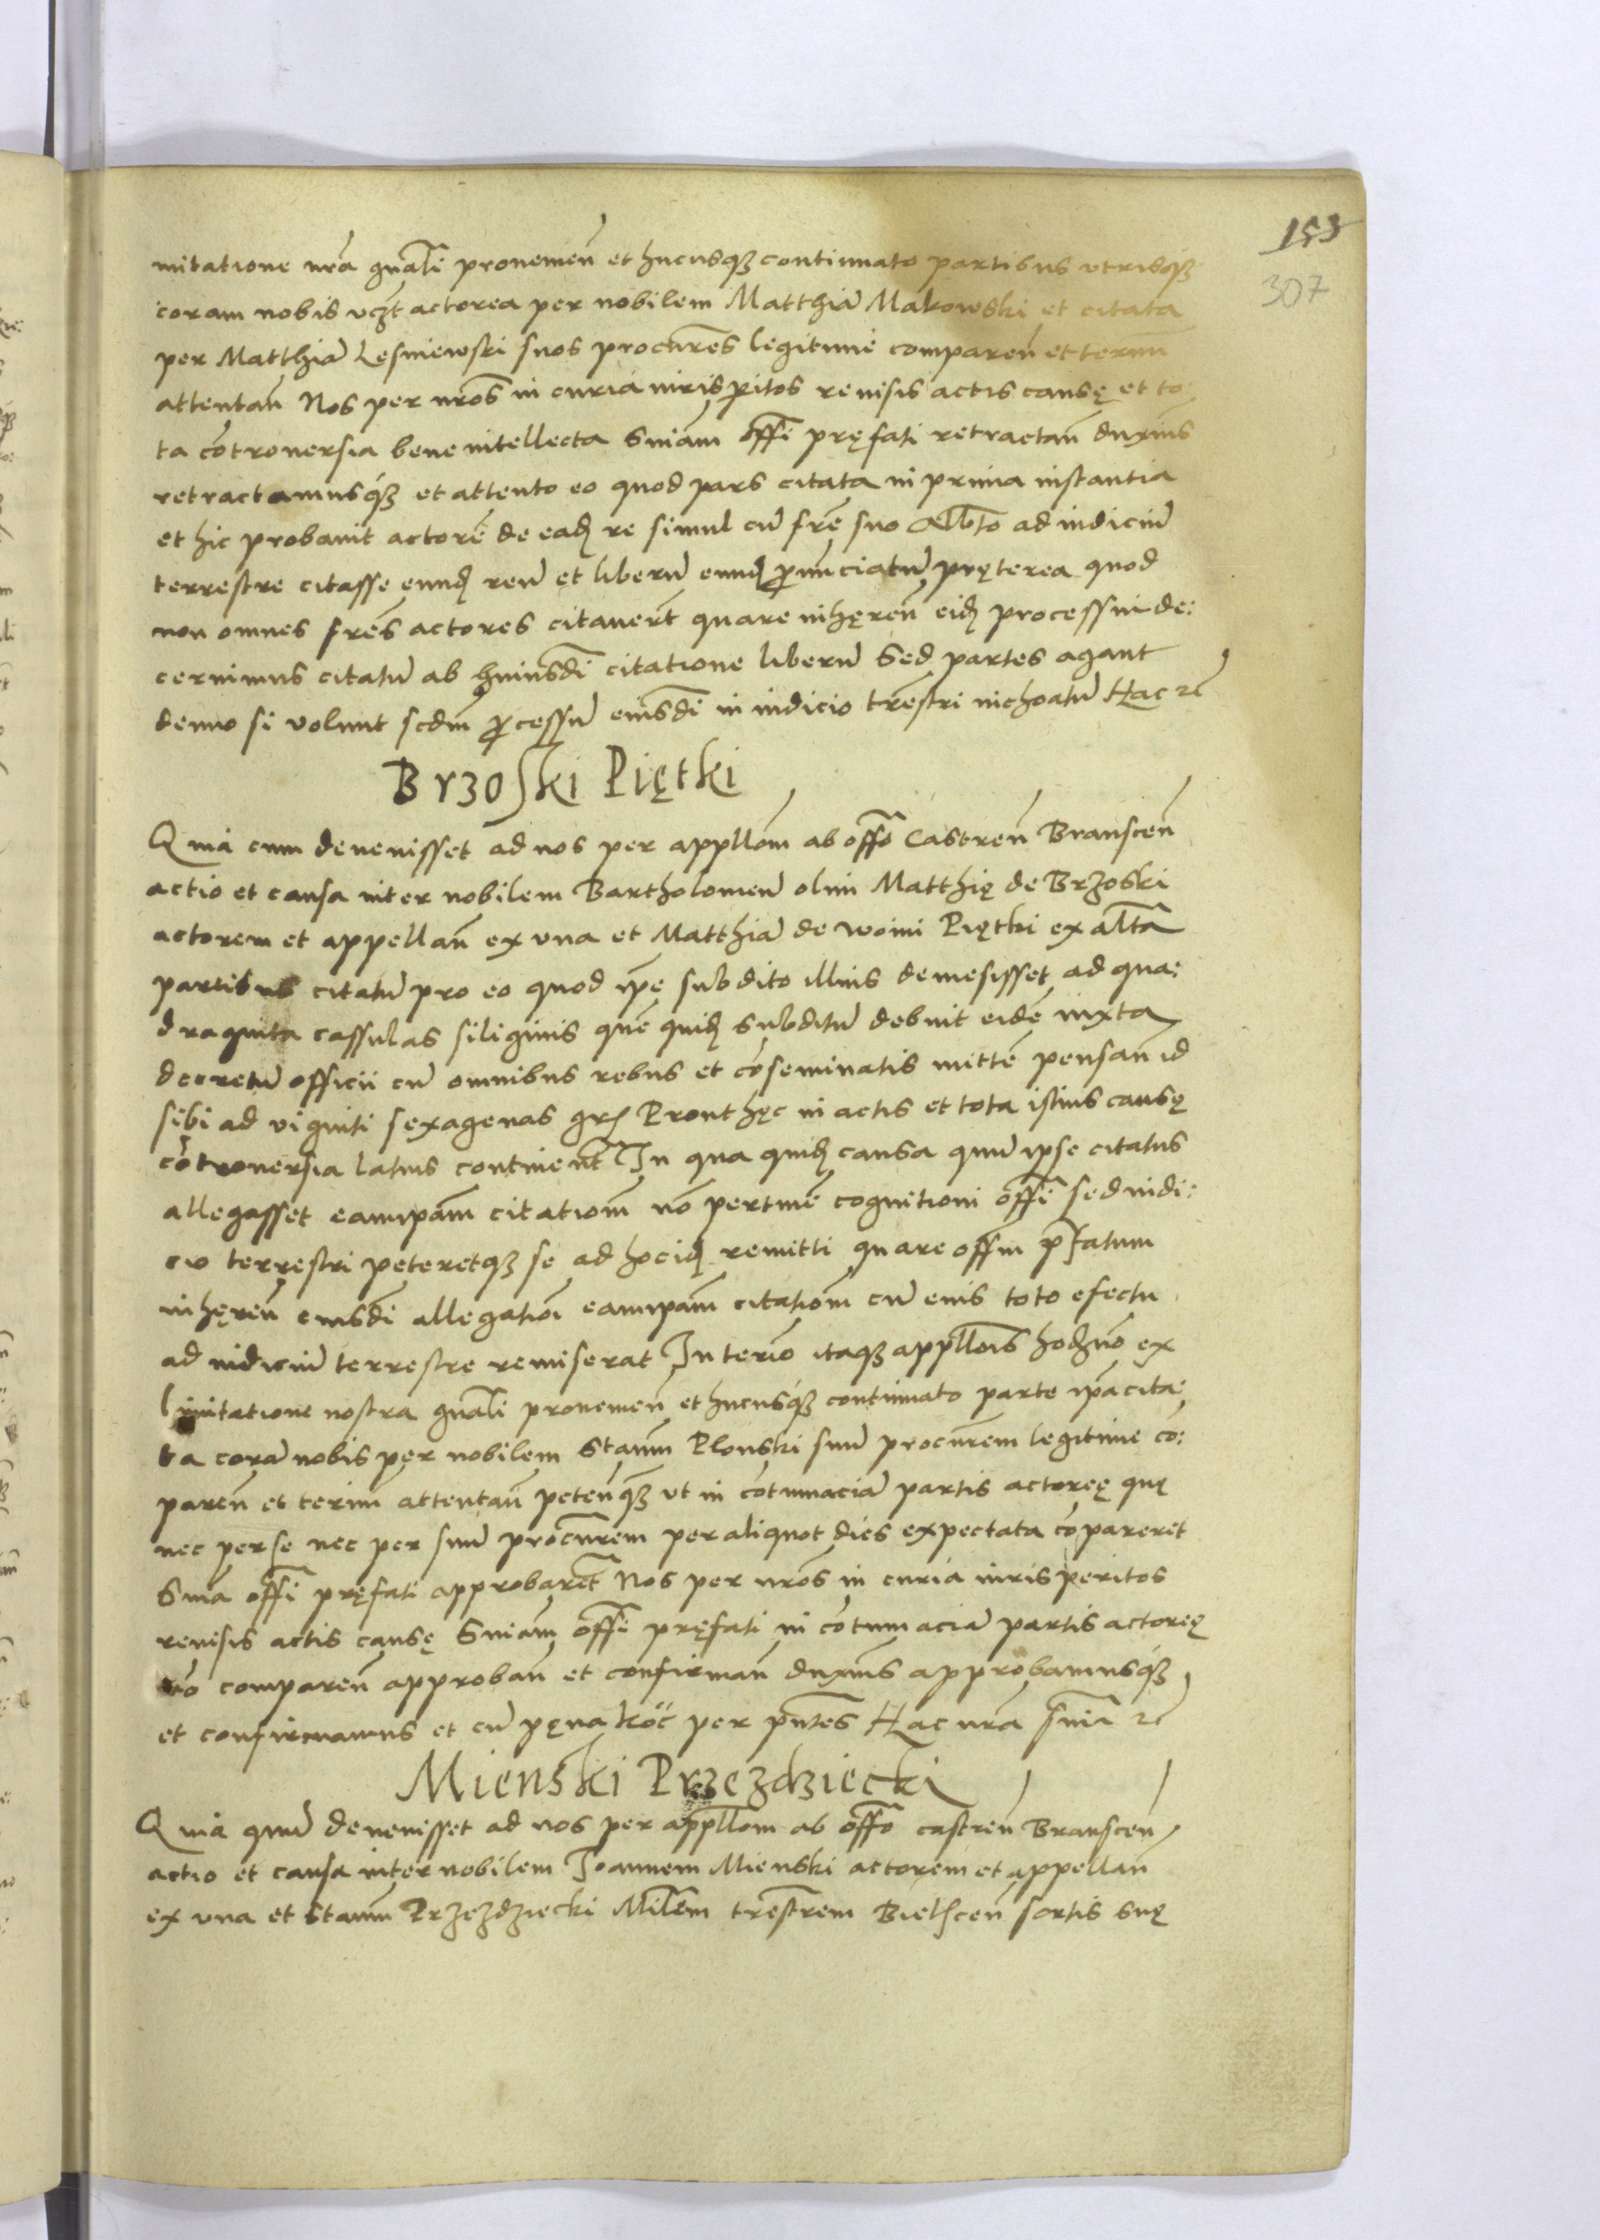 153
307
mitatione nr̃a gnãli provenien̄ et hucusq3 continuato partibus utrisq3
coram nobis vcz̃t actorea per nobilem Matthiā Makowski et citata
per Matthiā Lesniewski suos procur̃es legitime comparen̄ et termn̄
attentan̄ Nos per nr̃os in curia iurisperitos revisis actis causę et to:
ta cōtroversia bene intellecta Sniam̃ offi͠ pręfati retractan̄ duxim͠s
retractamusq3 et attento eo quod pars citata in prima instantia
et hic probavit actorē de ead̃ re simul cū fr̃e suo Alb̃to ad iudiciū
terrestre citasse eund̃ reū et liberū eund̃ pronunciatū pręterea quod
non omnes fr̃es actores citaver̃t quare inhęren̄ eid̃ processui de:
cernimus citatū ab huiusd̃i citatione liberū Sed partes agant
denuo si volunt scd̃m processū eiusd̃i in iudicio tr̃estri inchoatū Hac rc̃
Brzoski Piętki
Quia cum devenisset ad nos per appll̃om ab offo͠ Castren̄ Branscen̄
actio et causa inter nobilem Bartholomeū olim Matthię de Brzoski
actorem et appellan̄ ex una et Matthiā de Woini Piętki ex alt̃a
partibus citatū pro eo quod ip̃e subdito illius demesisset ad qua:
draginta cassulas siliginis quē quid̃ subditū debuit eidē iuxta
decretū officii cū omnibus rebus et cōseminatis mittē pensan̄ id
sibi ad viginti sexagenas gr̃ Pront hęc in actis et tota istius causę
cōtroversia latius continent̃ In qua quid̃ causa quū ipse citatus
allegasset eam ip̃am citation̄m nō pertinē cognitioni offi͠ sed iudi:
cio terrestri peteretq3 se ad hoc id̃ remitti quare offm͠ p̃fatum
inhęren̄ eiusd̃i allegatiōi eam ip̃am citatiōm cū eius toto efectu
ad iudiciū terrestre remiserat In termīo itaq3 appll̃ois hodier̃no ex
limitatione nostra gnãli provenien̄ et hucusq3 continuato parte ip̃a cita:
ta corā nobis per nobilem Stanm̃ Plonski suū procur̃em legitime cō:
paren̄ et termn̄ attentan̄ peten̄q3 ut in cōtumaciā partis actoreę quę
nec per se nec per suū procur̃em per aliquot dies expectata cōpareret
Snia͠ offi͠ pręfati approbaret̃ Nos per nr̃os in curia iuris peritos
revisis actis causę Sniam̃ offi͠ pręfati in cōtumaciā partis actoreę
nō comparen̄ approban̄ et confirman̄ duxim͠s approbamusq3
et confirmamus et cū pęna koc̃ per pn̄tes Hac nr̃a snia͠ rc̃
Mienski Przezdziecki
Quia quū devenisset ad nos per appll̃om ab offo͠ castren̄ Branscen̄
actio et causa inter nobilem Joannem Mienski actorem et appellan̄
ex una et Stanm̃ Przezdziecki Milit̃em tr̃estrem Bielscen̄ sortis suę